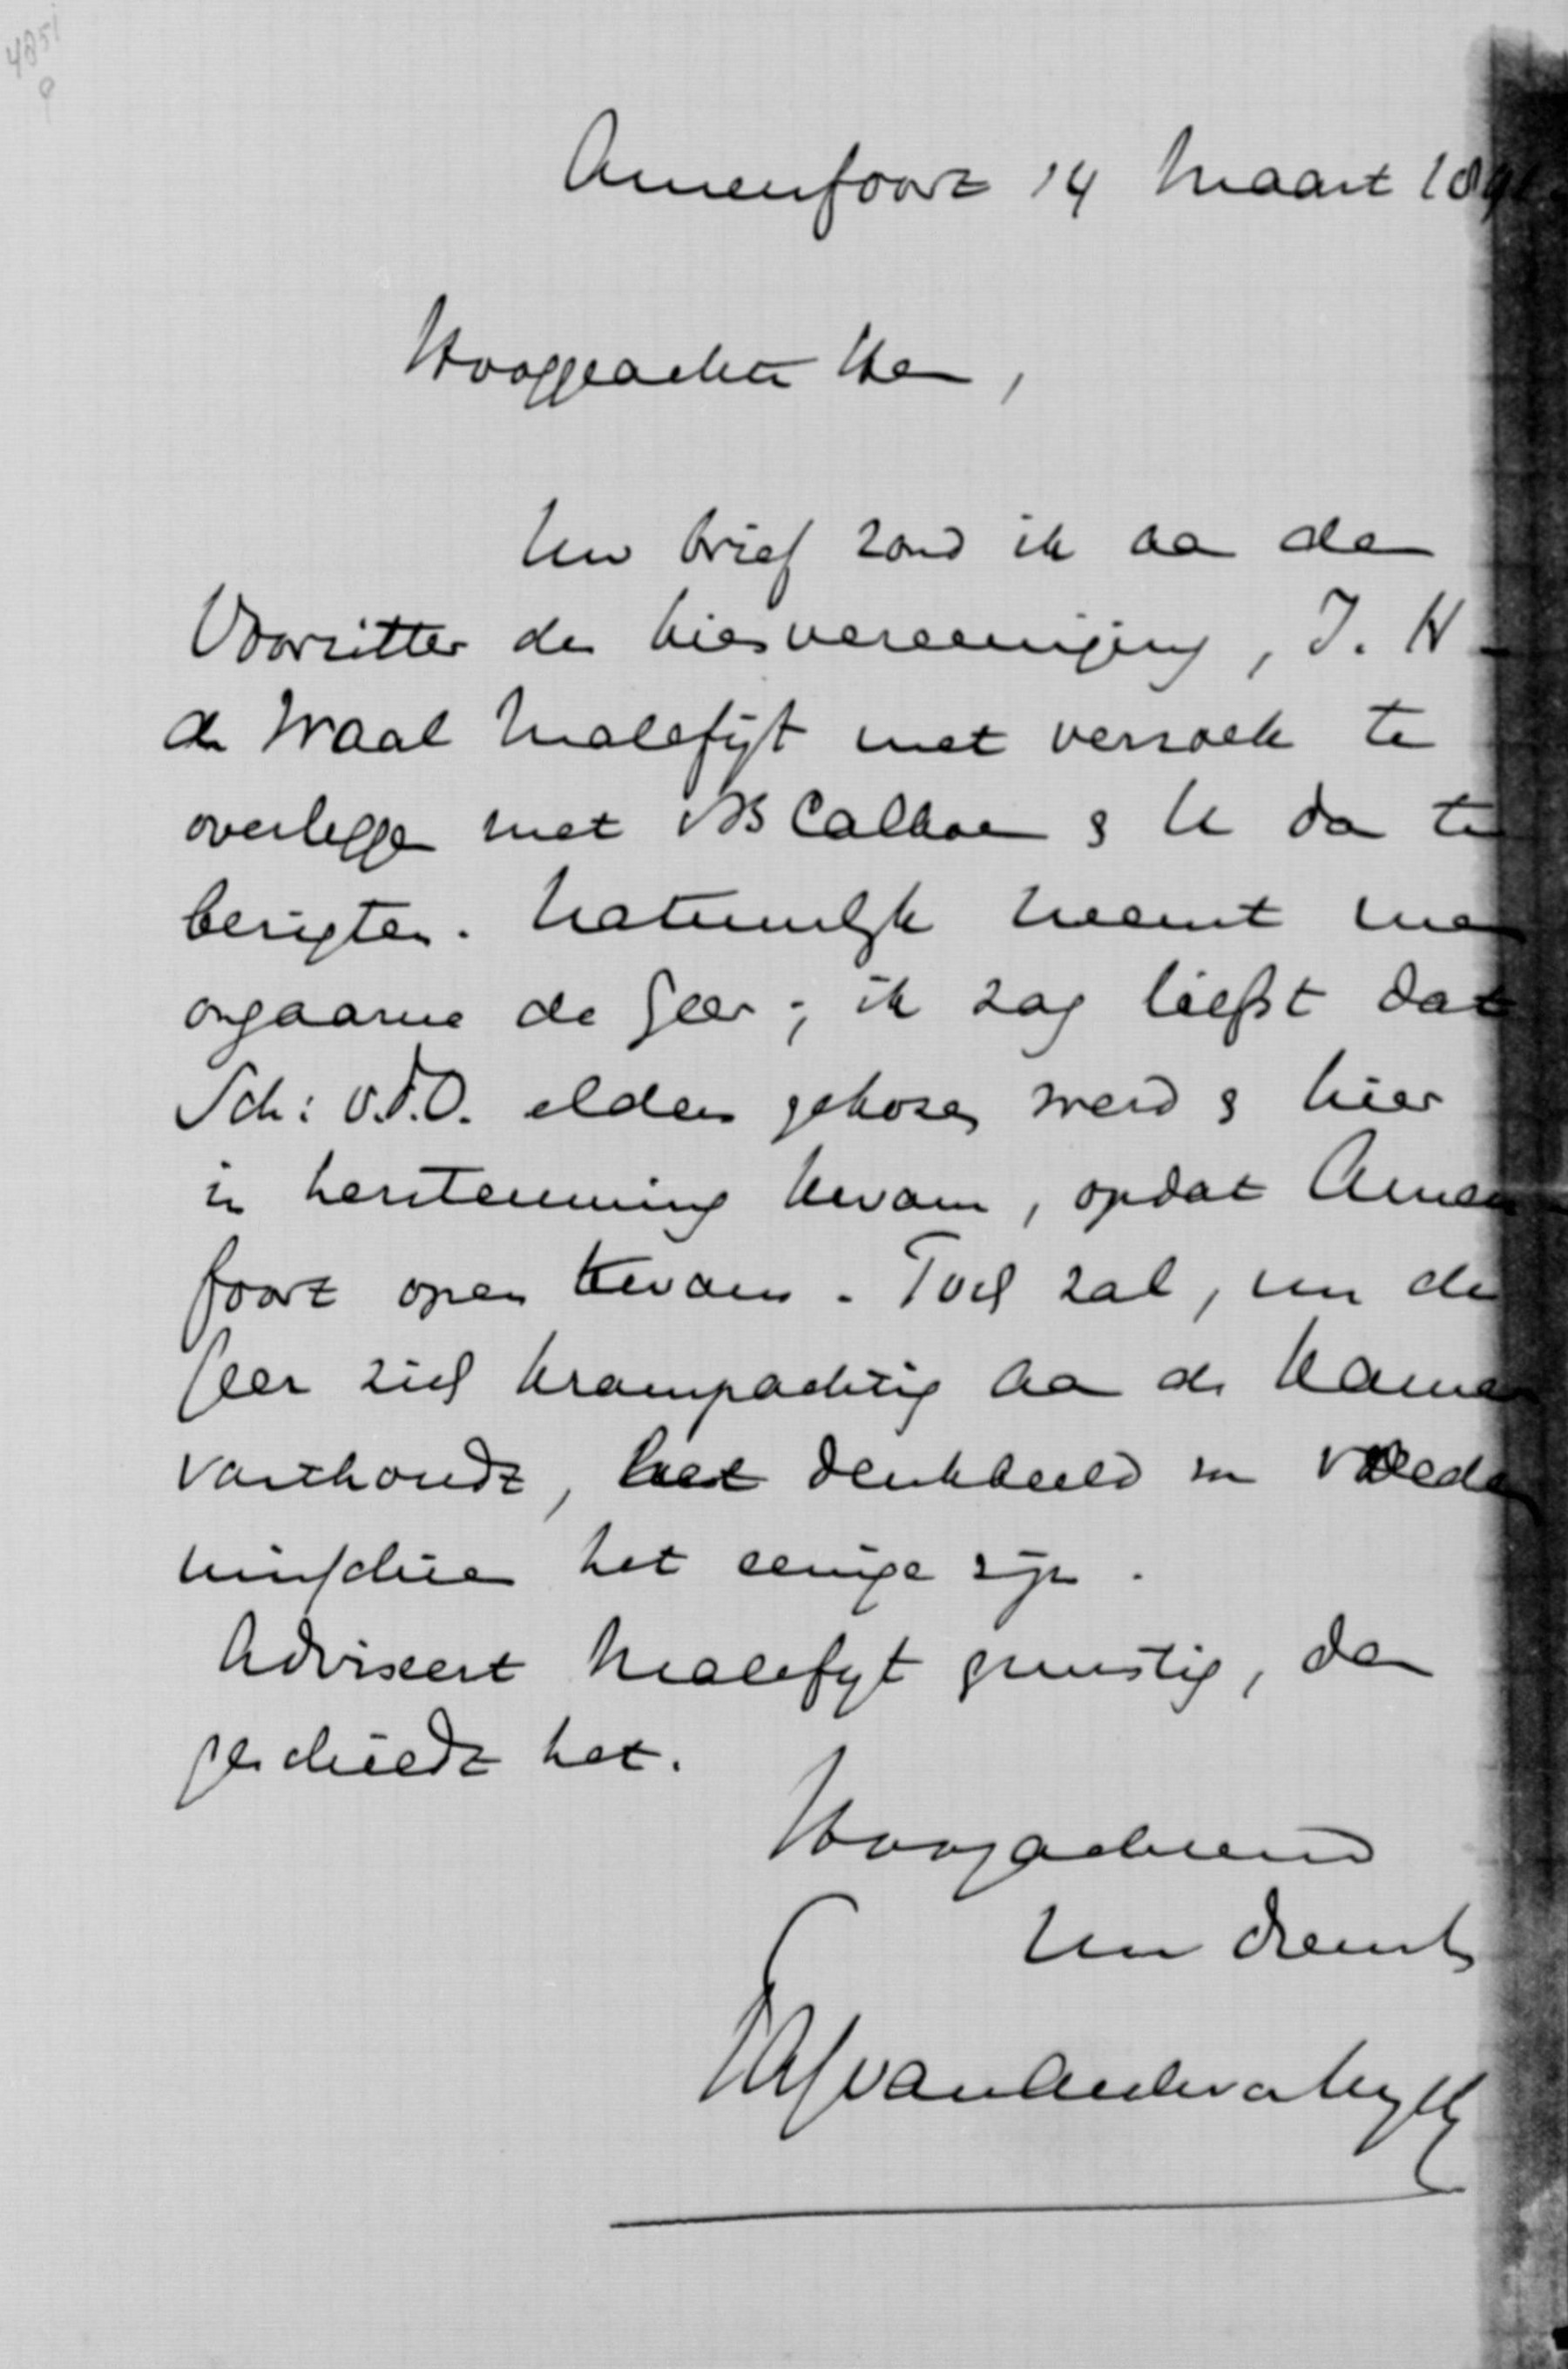 4851
Amersfoort 14 Maart 189
Hooggeachte Heer,
Uw brief zond ik aan den
Voorzitter der kiesvereeniging, J. H.
de Waal Malefijt met verzoek te
overleggen met Callcoen & U dan te
berigten. Natuurlijk neemt men
ongaarne de Geer; ik zag liefst dat
Sch: v.d.O. elders gekozen werd & hier
in herstemming kwam, opdat Amers
foort open kwam. Toch zal, nu de
Geer zich krampachtig aan de Kamer
vasthoudt, het denkbeeld in
misschien het eenige zijn.
Adviseert Malefijt gunstig, dan
geschiedt het.
Hoogachtend
Uw dienstv
van Asch van Wijck